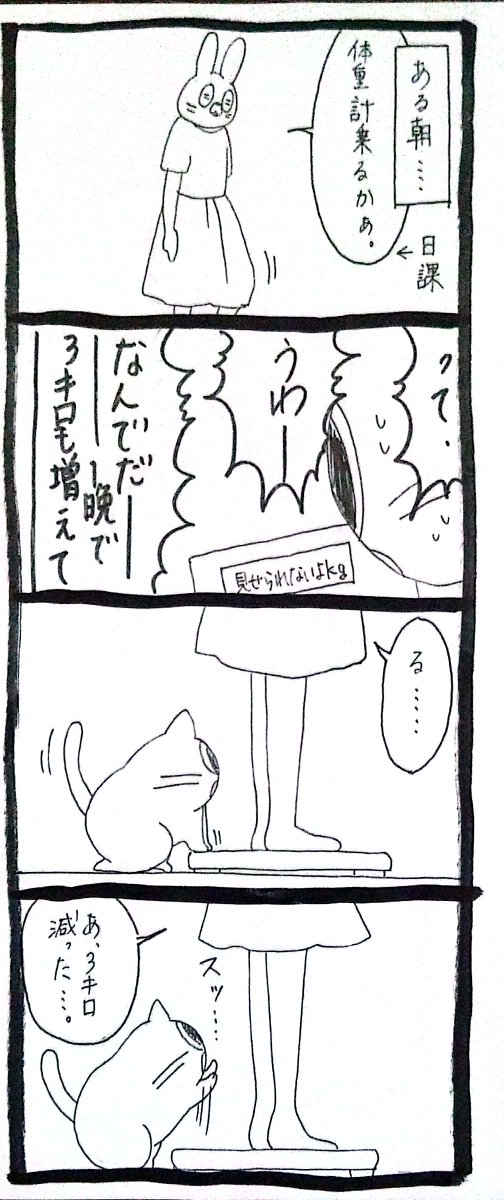 ある朝…‥
体重計乗るかぁ。
←日課
って、
うわー
なんでだー
一晩で
3キロも増えて
見せられないよkg
る……
あ、3キロ
減った…。
スッ…